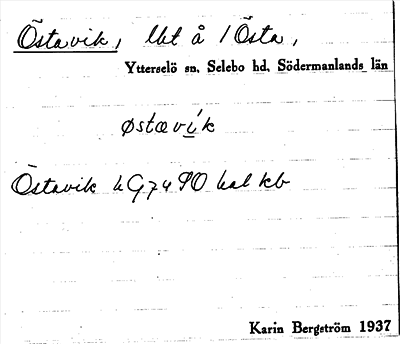 Östavik, lht å 1 Östa,
Ytterselö sn, Selebo hd, Södermanlands län
østævík
Östavik hG74 90 hal kb
Karin Bergström 1937